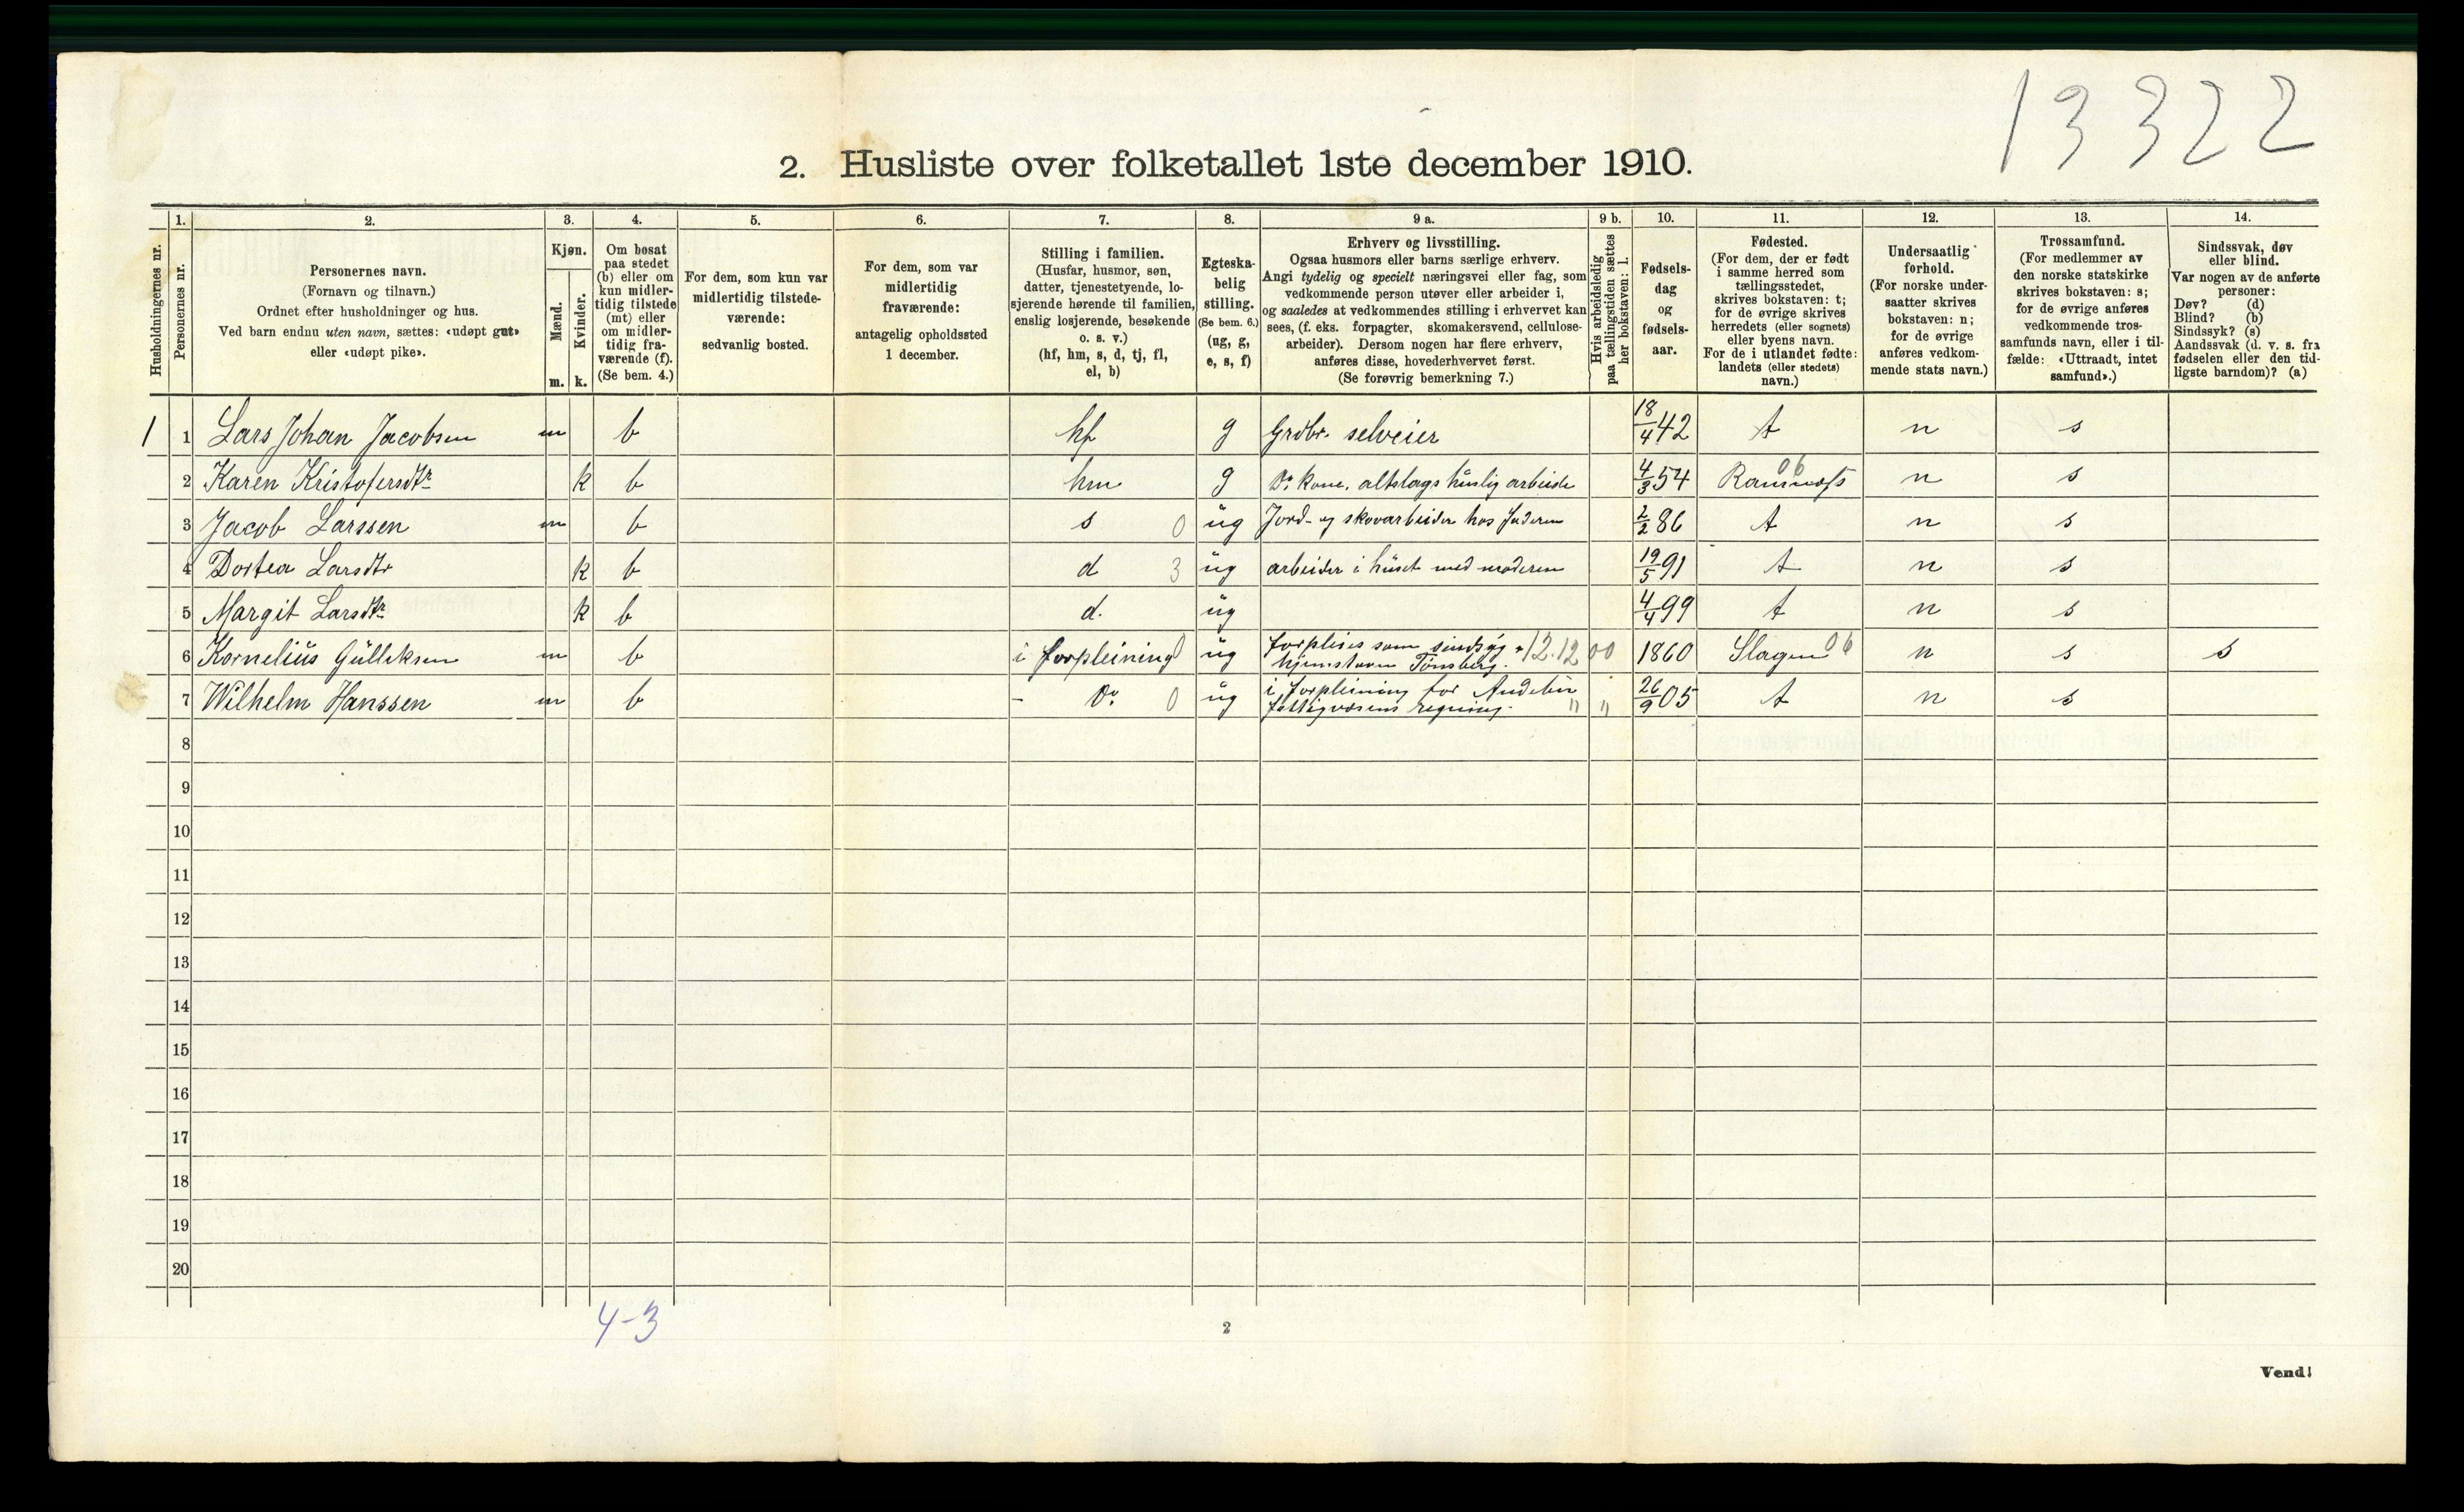 13322
2. Husliste over folketallet 1ste december 1910.
1. 2. 3. 4. 5. 6. 7. 8. 9 a. 9 b. 10. 11. 12. 13. 14.
Husholdningernes nr.
Personernes nr.
Personernes navn.
(Fornavn og tilnavn.)
Ordnet efter husholdninger og hus.
Ved barn endnu uten navn, sættes: «udøpt gut»
eller «udøpt pike».
Kjøn.
Mænd.
Kvinder.
m. k.
Om bosat
paa stedet
(b) eller om
kun midler-
tidig tilstede
(mt) eller
om midler-
tidig fra-
værende (f).
(Se bem. 4.)
For dem, som kun var
midlertidig tilstede-
værende:
sedvanlig bosted.
For dem, som var
midlertidig
fraværende:
antagelig opholdssted
1 december.
Stilling i familien.
(Husfar, husmor, søn,
datter, tjenestetyende, lo-
sjerende hørende til familien,
enslig losjerende, besøkende
o. s. v.)
(hf, hm, s, d, tj, fl,
el, b)
Egteska-
belig
stilling.
(Se bem. 6.)
(ug, g,
e, s, f)
Erhverv og livsstilling.
Ogsaa husmors eller barns særlige erhverv.
Angi tydelig og specielt næringsvei eller fag, som
vedkommende person utøver eller arbeider i,
og saaledes at vedkommendes stilling i erhvervet kan
sees, (f. eks. forpagter, skomakersvend, cellulose-
arbeider). Dersom nogen har flere erhverv,
anføres disse, hovederhvervet først.
(Se forøvrig bemerkning 7.)
Hvis arbeidsledig
paa tællingstiden sættes
her bokstaven: l.
Fødsels-
dag
og
fødsels-
aar.
Fødested.
(For dem, der er født
i samme herred som
tællingsstedet,
skrives bokstaven: t;
for de øvrige skrives
herredets (eller sognets)
eller byens navn.
For de i utlandet fødte:
landets (eller stedets)
navn.)
Undersaatlig
forhold.
(For norske under-
saatter skrives
bokstaven: n;
for de øvrige
anføres vedkom-
mende stats navn.)
Trossamfund.
(For medlemmer av
den norske statskirke
skrives bokstaven: s;
for de øvrige anføres
vedkommende tros-
samfunds navn, eller i til-
fælde: «Uttraadt, intet
samfund».)
Sindssvak, døv
eller blind.
Var nogen av de anførte
personer:
Døv? (d)
Blind? (b)
Sindssyk? (s)
Aandssvak (d. v. s. fra
fødselen eller den tid-
ligste barndom)? (a)
1 1 Lars Johan Jacobsen m b hf g Grdbr. selveier 18/4 42 t n s
2 Karen Kristofersdtr k b hm g Do kone. altslags huslig arbeide 4/3 54 Ramnæs 06 n s
3 Jacob Larssen m b s 0 ug Jord- og skovarbeider hos faderen 2/2 86 t n s
4 Dortea Larsdtr k b d 3 ug arbeider i huset med moderen 19/5 91 t n s
5 Margit Larsdtr k b d. ug 4/4 99 t n s
6 Kornelius Gulliksen m b i forpleining 0 ug forpleies som sindsyg 12.12 00 1860 Slagen 06 n s s
hjemstavn Tønsberg.
7 Wilhelm Hanssen m b - Do 0 ug i forpleining for Andebu " " 26/9 05 t n s
fattigvæsens regning.
8
9
10
11
12
13
14
15
16
17
18
19
20
4-3
2
Vend!